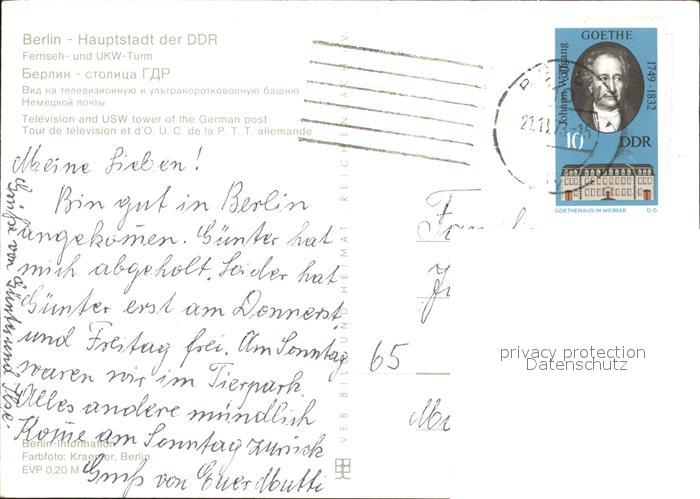 Berlin - Hauptstadt der DDR
Fernseh- und UKW-Turm
Берлин - столица ГДР
Вид на телевизионную и ультракоротковолновую башню
Немецкой почты
Television and USW tower of the German post
Tour de télévision et d'O. U. C. de la P. T. T. allemande
Meine Lieben!
Bin gut in Berlin
angekom̅en. Günter hat
mich abgeholt. Leider hat
Günter erst am Donnerst.
und Freitag frei. Am Sonntag
waren wir im Tierpark.
Alles andere mündlich
Kom̅e am Sonntag zurück
Gruß von Euer Mutti
Grüße von Günter und Ilse
Berlin-Information
Farbfoto: Kraemer, Berlin
EVP 0,20 M
VEB BILD UND HEIMAT REICHENBACH V
GOETHE
Johann Wolfgang
1749 - 1832
10
DDR
GOETHEHAUS IN WEIMAR
D. G.
21.11.73-15
65
privacy protection
Datenschutz